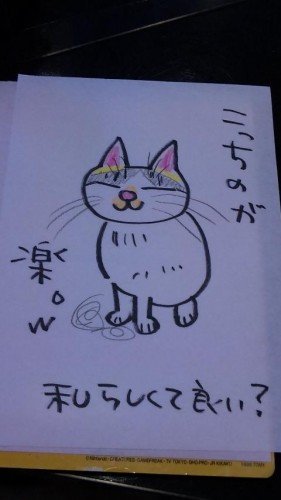 こっちのが
楽。w
私らしくて良い?
©Nintendo・CREATURES・GAMEFREAK・TV TOKYO・SHO-PRO・JR KIKAKU